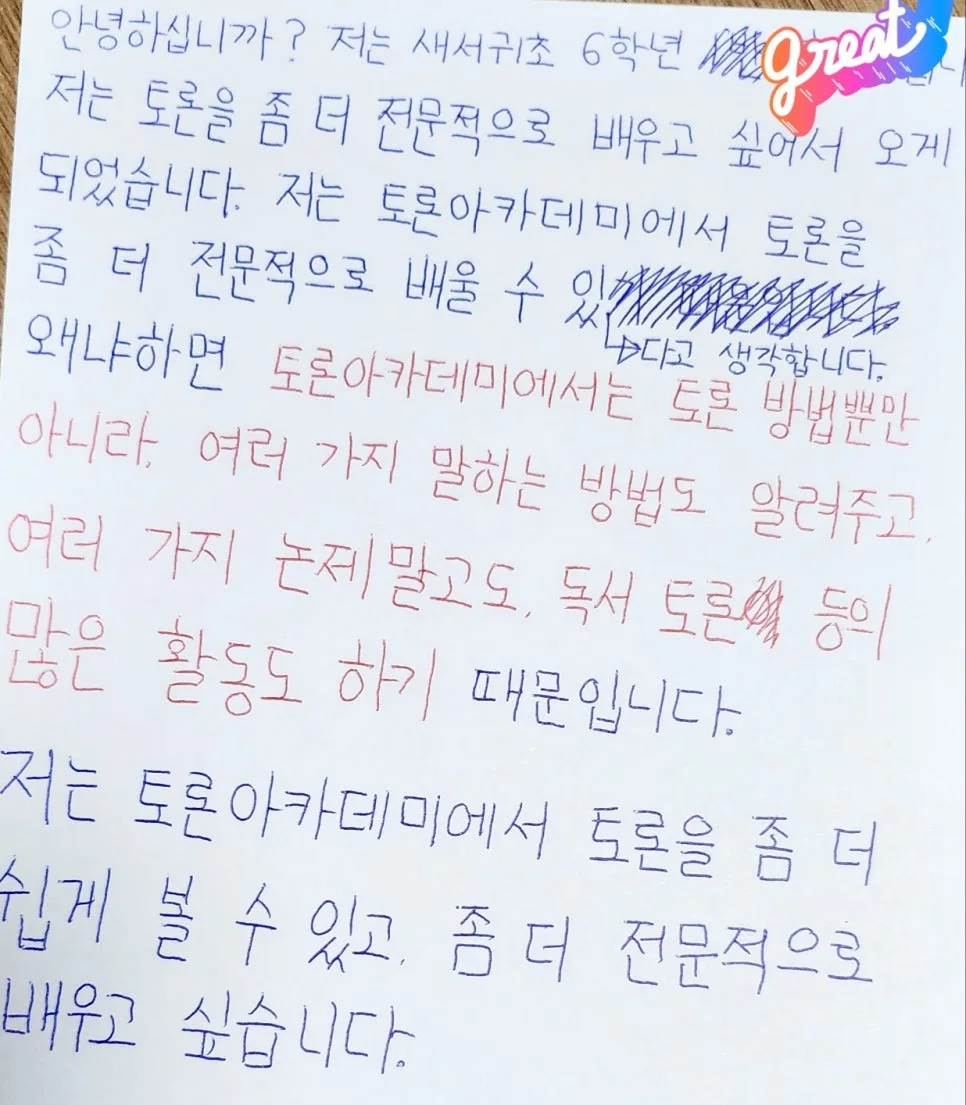 안녕하십니까? 저는 새서귀초 6학년
great
저는 토론을 좀 더 전문적으로 배우고 싶어서 오게
되었습니다. 저는 토론아카데미에서 토론을
좀 더 전문적으로 배울 수 있
다고 생각합니다.
왜냐하면 토론아카데미에서는 토론 방법뿐만
아니라, 여러 가지 말하는 방법도 알려주고,
여러 가지 논제말고도, 독서 토론 등의
많은 활동도 하기 때문입니다.
저는 토론아카데미에서 토론을 좀 더
쉽게 볼 수 있고, 좀 더 전문적으로
배우고 싶습니다.